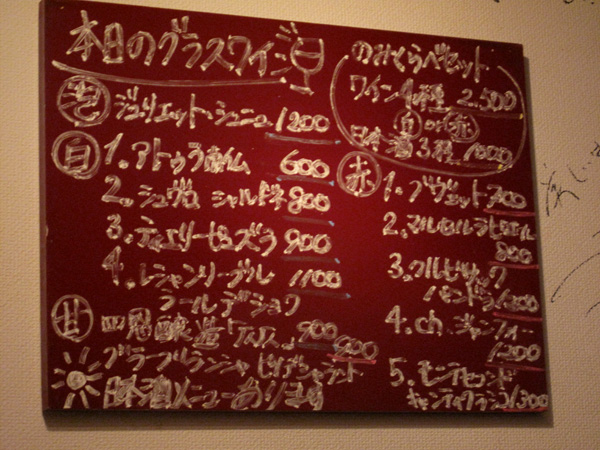 本日のグラスワイン
泡 ジュリエット・シュニュ 1200
白 1. アトゥラ 600
2. シュヴロ シャルドネ 800
3. ティエリーピュズラ 900
4. レシャンリーブル 1100
ラールデショワ
甘 四恩醸造 900
グラーブブランシャ 900
日本酒メニューあります
のみくらべセット
ワイン4種 2,500
白 or 赤
日本酒3種 1000
赤
1. ブヴェット 700
2. マルセルラピエール
800
3. クルビサック
パンドラ 1200
4. ch. ジャンフォー
1200
5. モンテセコンド
キャンティクラシコ 1300